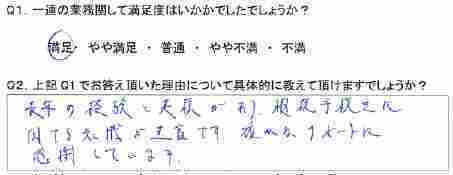 Q1. 一連の業務関して満足度はいかかでしたでしょうか？
満足・ やや満足 ・ 普通 ・ やや不満 ・ 不満
Q2. 上記Q1でお答え頂いた理由について具体的に教えて頂けますでしょうか？
長年の経験と実績が有り、相続手続きに
関する知識が豊富です 確かなサポートに
感謝しています。